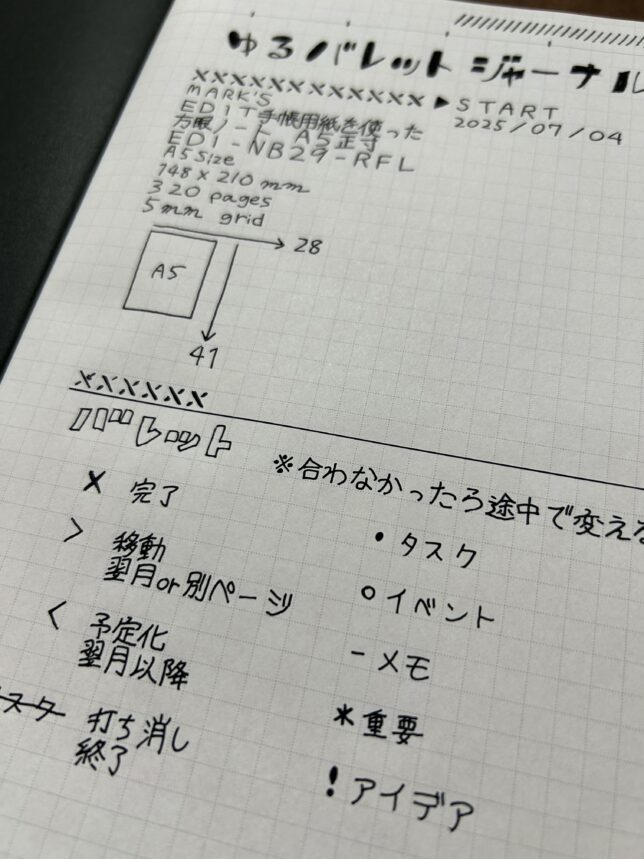 ゆるバレットジャーナル
XXXXXXXXXXXXX ▶ START
2025/07/04
MARK'S
EDiT手帳用紙を使った
方眼ノート A5正寸
EDI-NB29-RFL
A5 Size
148 x 210 mm
320 pages
5mm grid
28
A5
41
XXXXXX
バレット
※合わなかったら途中で変える
× 完了
> 移動
翌月or別ページ
< 予定化
翌月以降
スター 打ち消し
終了
• タスク
○ イベント
- メモ
* 重要
! アイデア